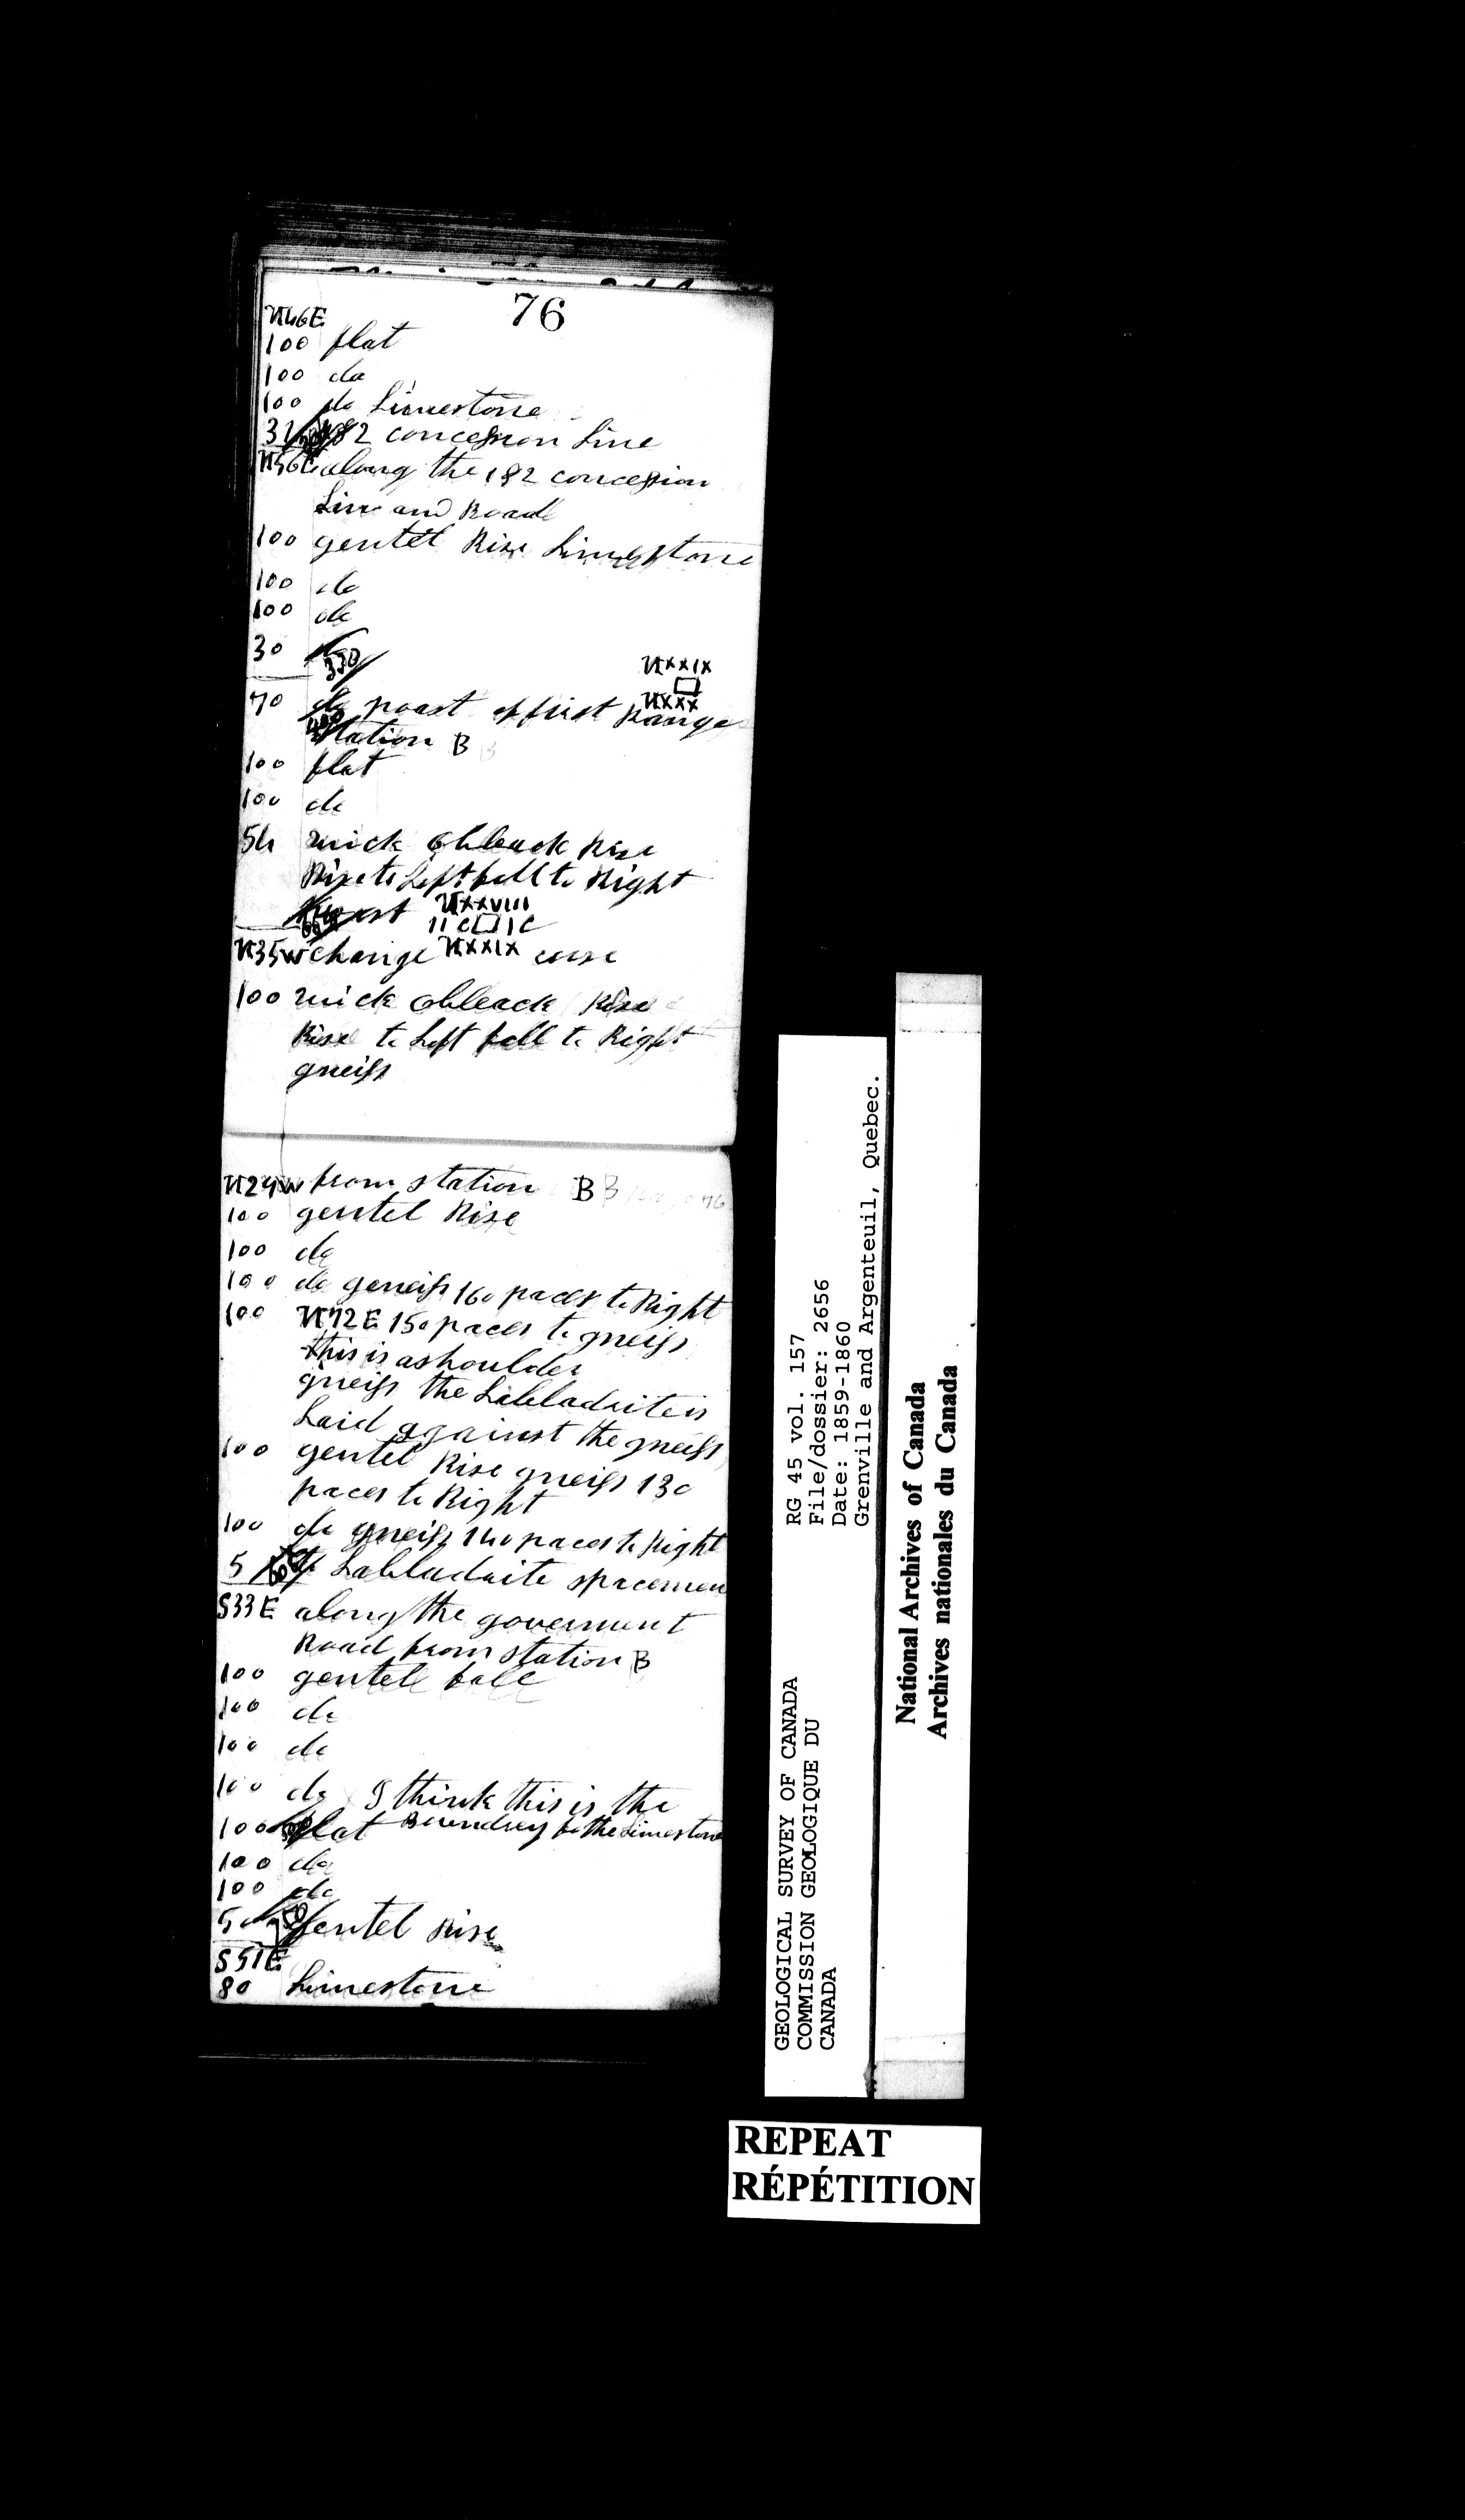 76
N46E
100 flat
100 do
100 do Limestone
32 1&2 concession Line
N56E along the 1&2 concession
Line and Road
100 gentel Rise Limestone
100 do
100 do
30
330
NXXIX
NXXX
70 do poast of first Range
Station B
100 flat
100 do
54 quick obleack Rise
Rise to Left fall to Right
NXXVIII
11C 1C
NXXIX
N35W change corse
100 quick obleack Rise
Rise to Left fall to Right
gneiss
N24W from station B
100 gentel Rise
100 do
100 do geneiss 160 paces to Right
100 N72E 150 paces to gneiss
this is a shoulder
gneiss the Labladrite is
Laid against the gneiss
100 gentel Rise gneiss 130
paces to Right
100 do gneiss 140 paces to Right
5 Labladrite spacemen
S33E along the goverment
Road from station B
100 gentell fall
100 do
100 do
100 do I think this is the
100 flat Boundrey to the Limestone
100 do
100 do
50 gentel Rise
S51E
80 Limestone
GEOLOGICAL SURVEY OF CANADA
COMMISSION GEOLOGIQUE DU
CANADA
RG 45 vol. 157
File/dossier: 2656
Date: 1859-1860
Grenville and Argenteuil, Quebec.
National Archives of Canada
Archives nationales du Canada
REPEAT
RÉPÉTITION